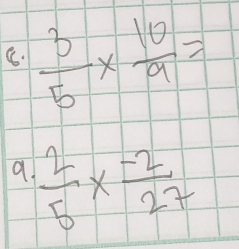 8. 3/5 × 10/9 =
9. 2/5 × -2/27